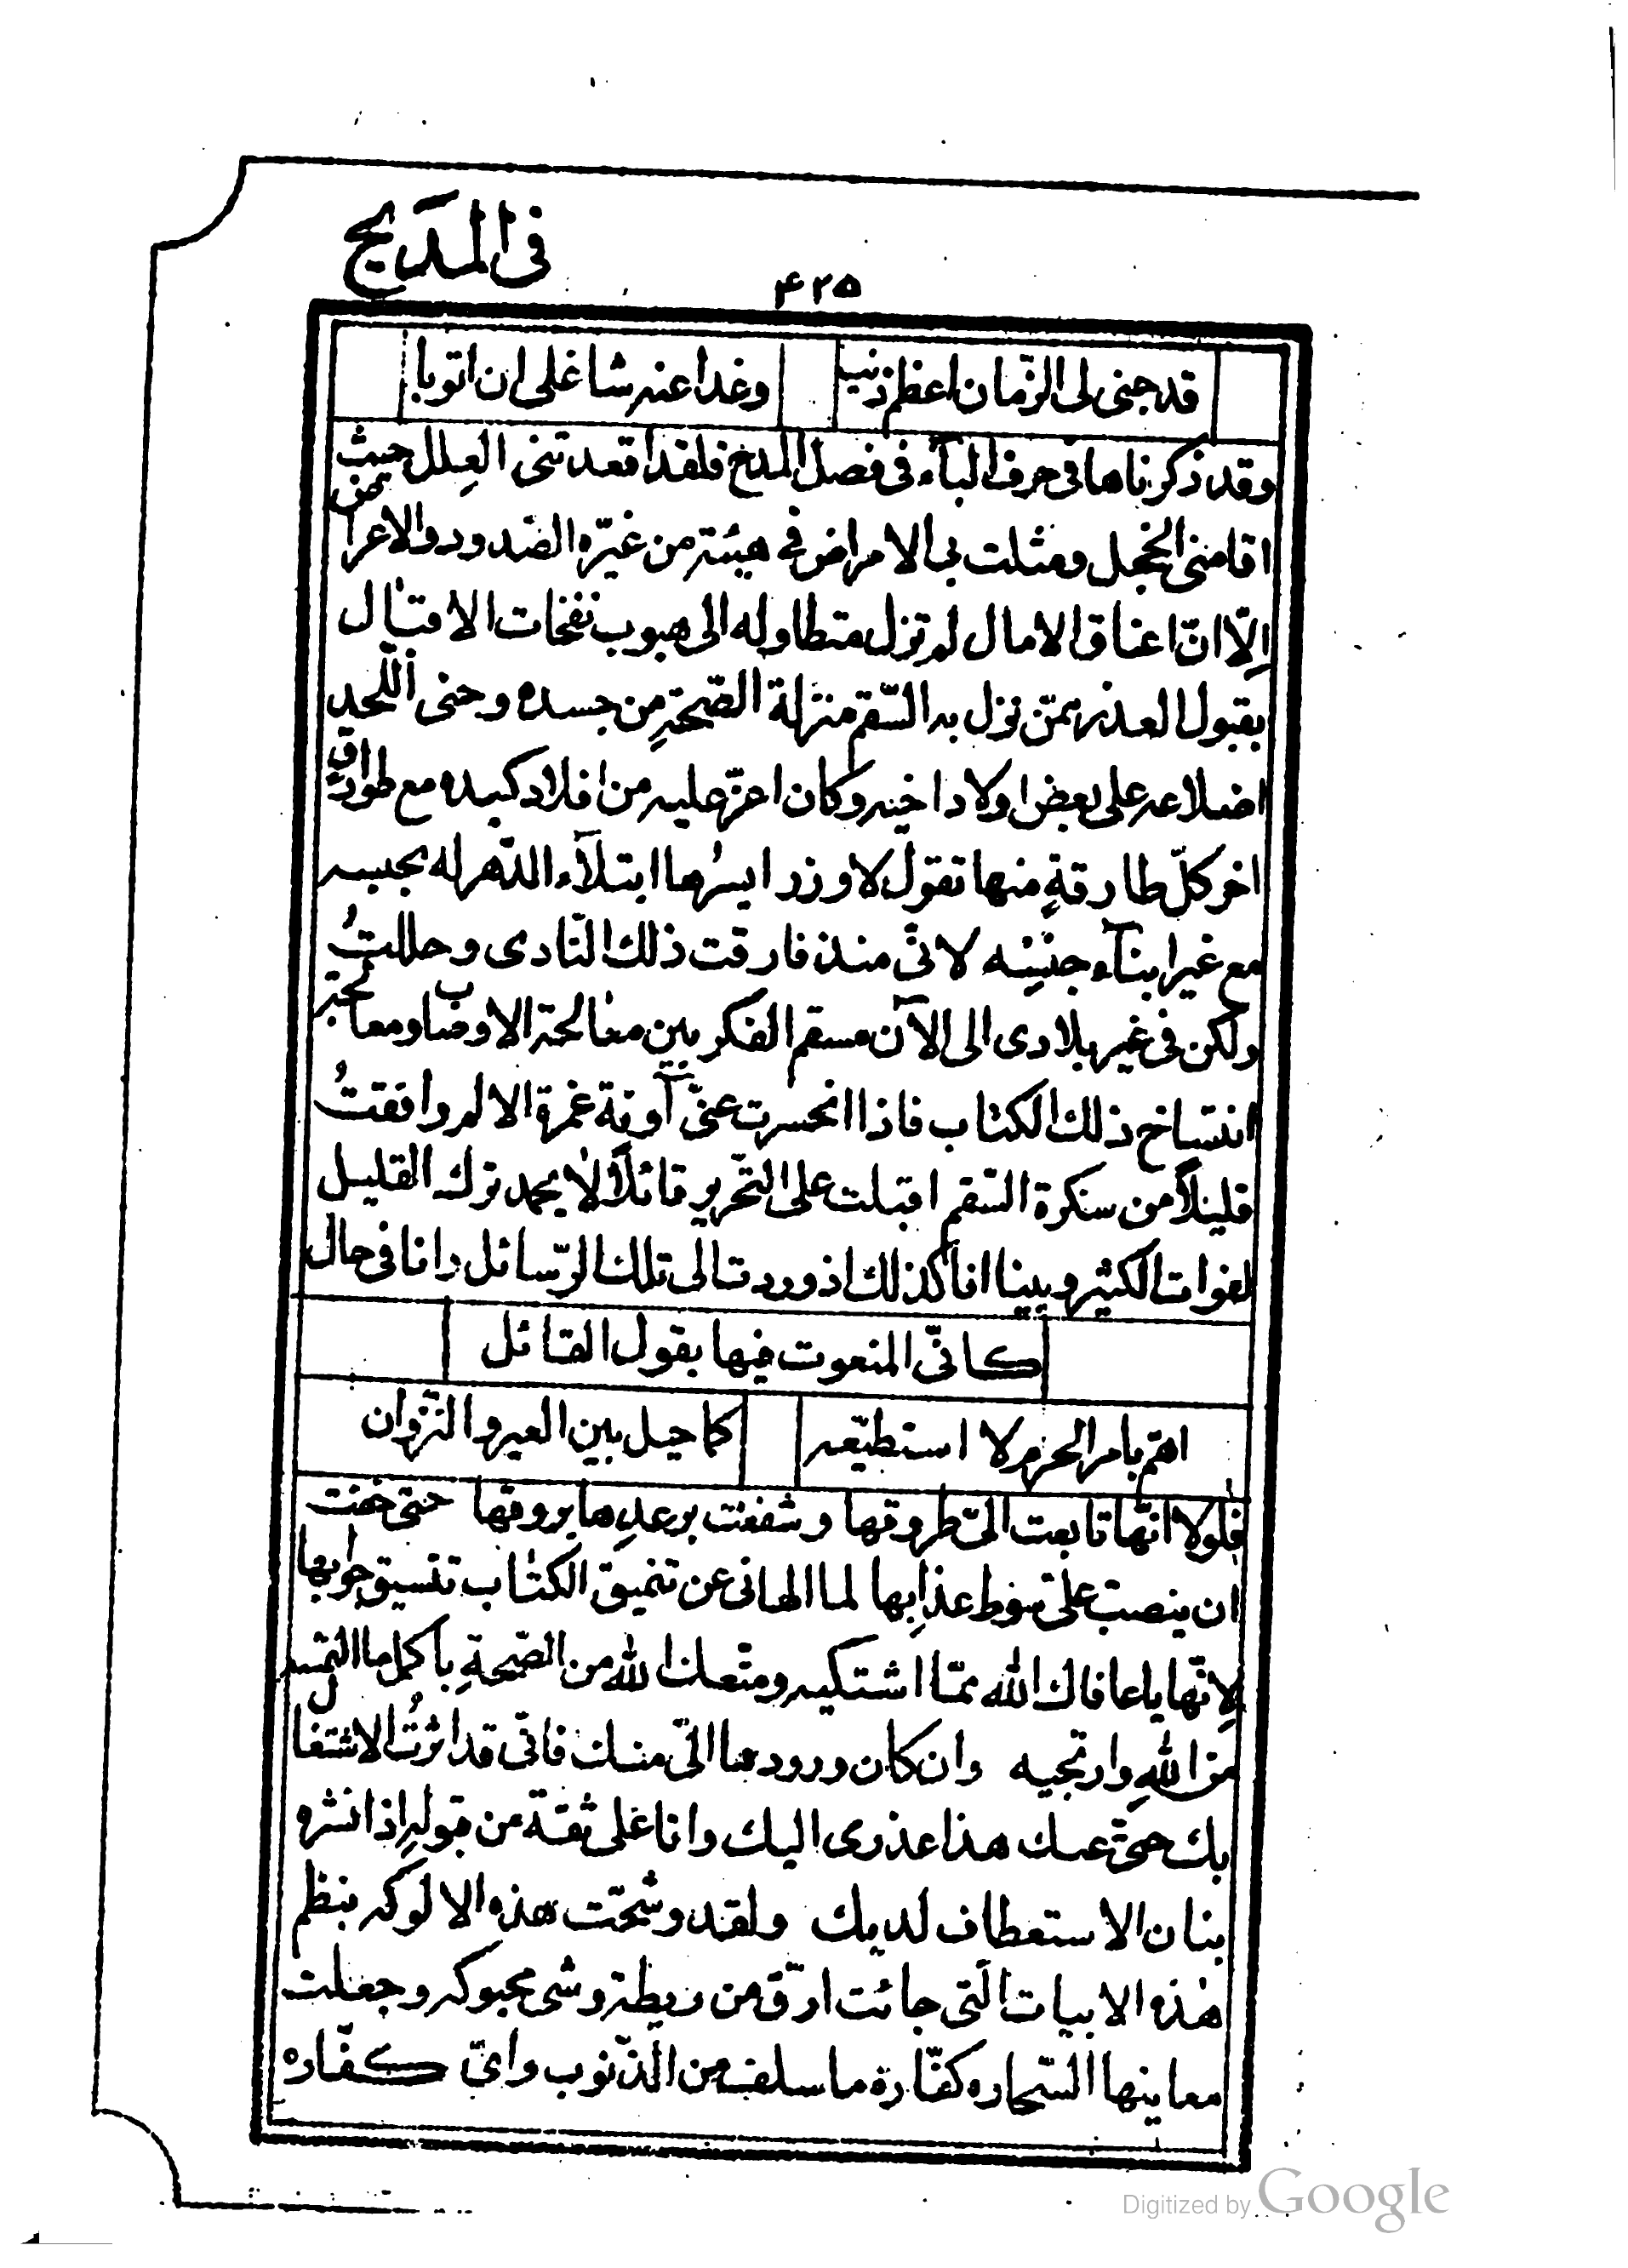 فى المديح
۴۲۵
قد جنى لى الزّمان اعظم ذنب وغدا عنه شاغلى ان اتوبا
وقد ذكرناها فى حرف البآء فى فصل المدح فلقد اقعدتنى العِلل حيث
اقامنى الخجل ومثلت بى الامراض فى هيئة من غيّره الصّدود والاعراض
اِلّا انّ اعناق الامال لم تزل متطاوله الى هبوب نفخات الاقبال
بقبول العذر ممّن نزل به السّقم منزلة الصّحةِ من جسده وحنى اللّحد
اضلاعه على بعض اولاد اخيه وكان اعزّ عليه من افلاذ كبده مع طوارق
اخر كلّ طارقةٍ منها تقول لا وزر ايسرُها ابتلآء الدّهر له بحبسه
مع غير ابنآء جنسِه لانّى منذ فارقت ذلك النّادى وحللتُ
ولكن فى غير بلادى الى الآن مسقم الفكر بين معالجة الاوصاب ومعا
انتساخ ذلك الكتاب فاذا انحسرت عنّى آونة غمرة الالم وافقتُ
قليلاً من سكرة السّقم اقبلت على التّحرير قائلاً لا يحمد ترك القليل
لفوات الكثير وبينا انا كذلك اذ وردت الى تلك الرّسائل وانا فى حال
كانّى المنعوت فيها بقول القائل
اهمّ بامر الحزم لا استطيعه كما حيل بين العير والنّزوان
فلولا انّها تابعت الىّ طروقها وشفعت برعدِها بروقها حتى خفت
ان ينصبّ علىّ سوط عذابِها لما الهانى عن تنميق الكتاب تنسيق جوابها
لِانّها يا عافاك الله ممّا اشتكيه ومتّعك الله من الصّحةِ باكمل ما التمسه
من اللهِ وارتجيه وان كان ورودها الىّ منك فانّى قد اثرتُ الاشتغال
بك حتّى عنك هذا عذرى اليك وانا على ثقة من قبولِه اذا نشره
بنان الاستعطاف لديك ولقد وشّحت هذه الالوكه بنظم
هذه الابيات الّتى جائت ارّق من ريطة وشى محبوكه وجعلت
معاينها السّحاره كفّارة ما سلف من الذّنوب واىّ كفّاره
Digitized by Google